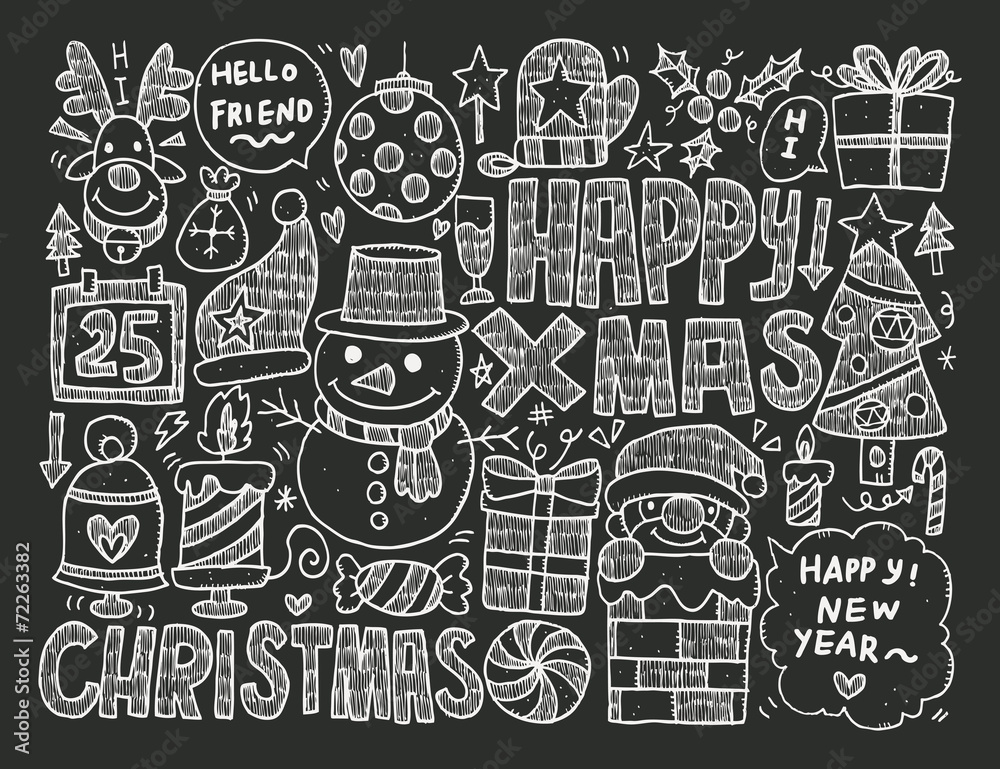 HI
HELLO
FRIEND ~
HI
HAPPY
25
XMAS
#
HAPPY!
NEW
YEAR~
CHRISTMAS
Adobe Stock | #72263382
Adobe Stock